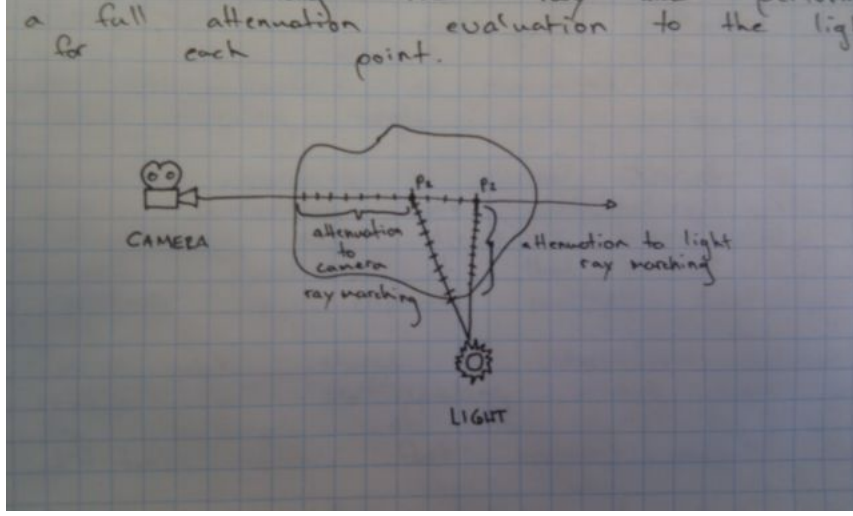 a full attenuation evaluation to the lig
for each point.
P1 P2
CAMERA
attenuation
to
camera
ray marching
attenuation to light
ray marching
LIGHT